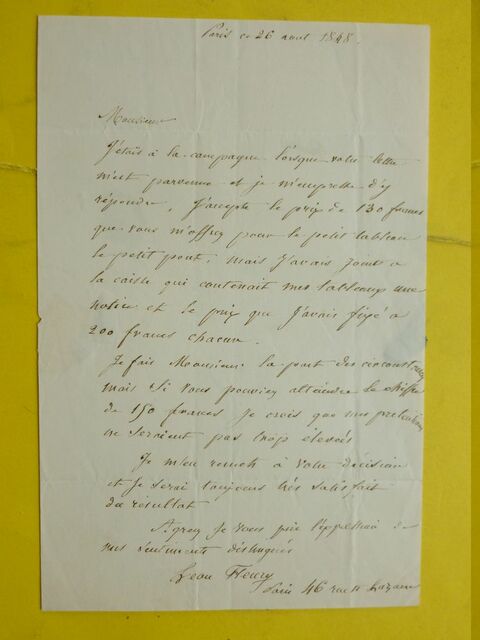 Paris ce 26 aout 1848.
Monsieur
J'étais à la campagne lorsque votre lettre
m'est parvenue et je m'empresse d'y
répondre, J'accepte le prix de 130 francs
que vous m'offrez pour le petit tableau
le petit pont; mais J'avais joint a
la caisse qui contenait mes tableaux une
notice et le prix que J'avais fixé a
200 francs chacun.
Je fais Monsieur la part des circonstances
mais si vous pouviez atteindre le chiffre
de 150 francs Je crois que mes prétentions
ne seraient pas trop élevées
Je m'en remets à votre décision
et Je serai toujours très satisfait
du résultat
Agréez Je vous prie l'expression de
mes sentiments distingués
Leon Fleury
Paris 46 rue St Lazare